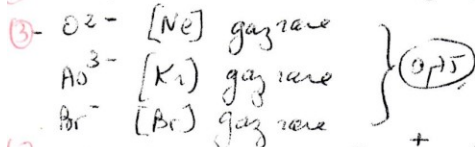 3- O2- [Ne] gaz rare
As3- [Kr] gaz rare } 0,75
Br- [Br] gaz rare
+